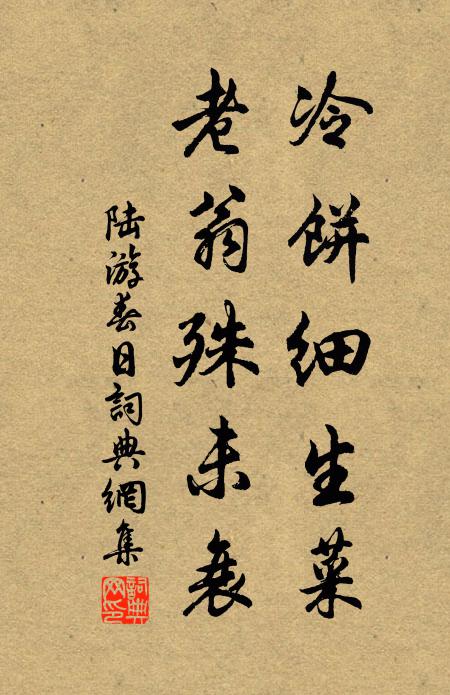 冷餅細生菜
老翁殊未衰
陸游春日詞典網集
詞典網印